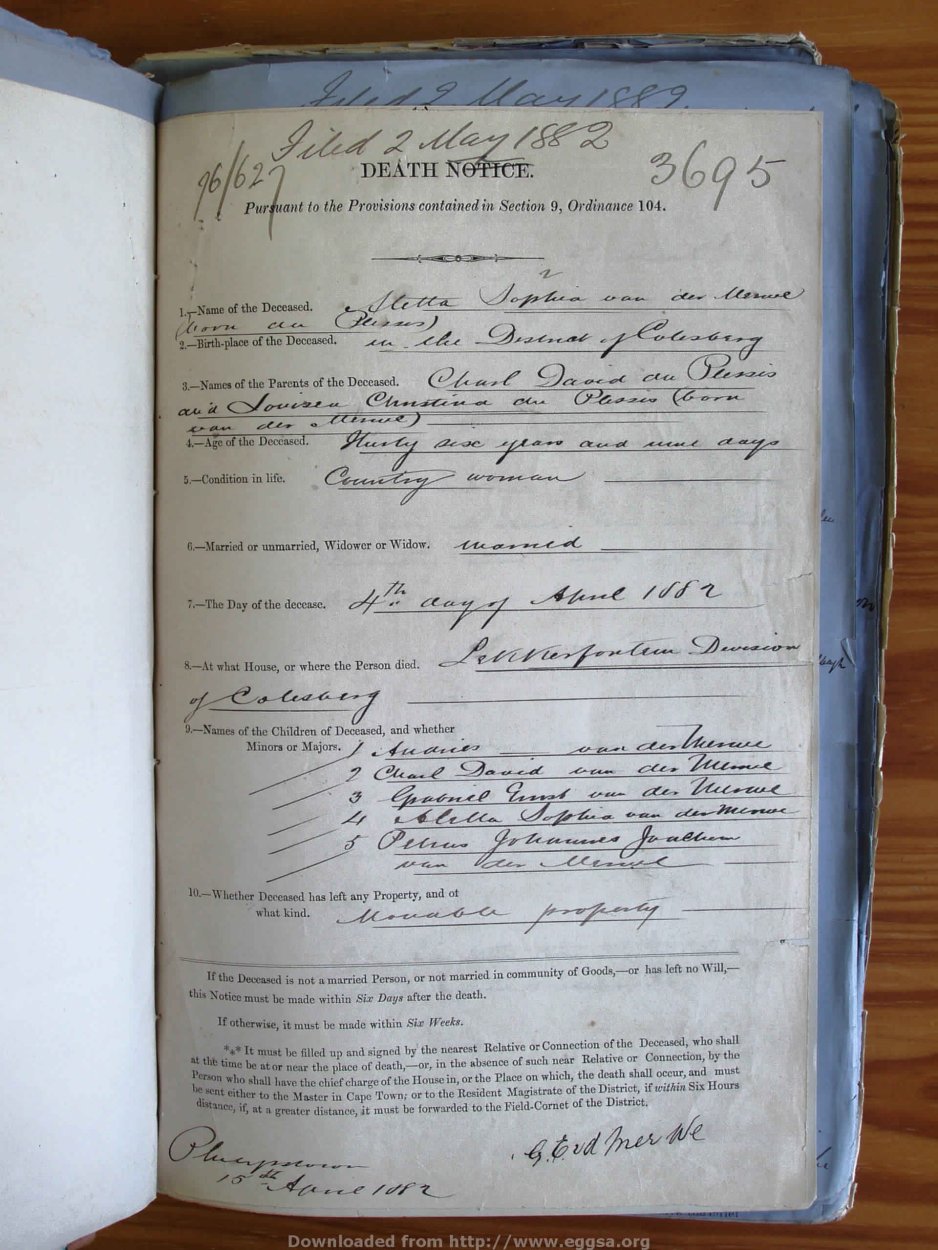 Filed 2 May 1882
Filed 2 May 1882
96/627
3695
DEATH NOTICE.
Pursuant to the Provisions contained in Section 9, Ordinance 104.
1.—Name of the Deceased. Aletta Sophia van der Merwe
(born du Plessis)
2.—Birth-place of the Deceased. in the District of Colesberg
3.—Names of the Parents of the Deceased. Charl David du Plessis
and Louiza Christina du Plessis (born
van der Merwe)
4.—Age of the Deceased. Thirty six years and nine days
5.—Condition in life. Country woman
6.—Married or unmarried, Widower or Widow. married
7.—The Day of the decease. 4th day of April 1882
8.—At what House, or where the Person died. Lekkerfontein Division
of Colesberg
9.—Names of the Children of Deceased, and whether
Minors or Majors. 1 Andries van der Merwe
2 Charl David van der Merwe
3 Gabriel Ernst van der Merwe
4 Aletta Sophia van der Merwe
5 Petrus Johannes Joachem
van der Merwe
10.—Whether Deceased has left any Property, and of
what kind. Movable property
If the Deceased is not a married Person, or not married in community of Goods,—or has left no Will,—
this Notice must be made within Six Days after the death.
If otherwise, it must be made within Six Weeks.
*** It must be filled up and signed by the nearest Relative or Connection of the Deceased, who shall
at the time be at or near the place of death,—or, in the absence of such near Relative or Connection, by the
Person who shall have the chief charge of the House in, or the Place on which, the death shall occur, and must
be sent either to the Master in Cape Town; or to the Resident Magistrate of the District, if within Six Hours
distance, if, at a greater distance, it must be forwarded to the Field-Cornet of the District.
G. E vd Mer We
Philipstown
15th April 1882
Downloaded from http://www.eggsa.org